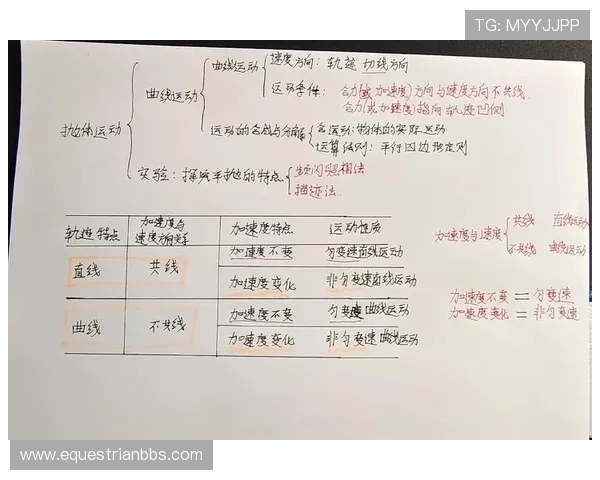 TG: MYYJJPP
抛体运动
曲线运动
曲线运动
速度方向：轨迹 切线方向
运动条件：合力(或加速度)方向与速度方向不共线
合力(或加速度)指向轨迹凹侧
运动的合成与分解
合运动：物体的实际运动
运算法则：平行四边形定则
实验：探究平抛的特点
频闪照相法
描迹法
轨迹特点 加速度与速度方向关系 加速度特点 运动性质
直线 共线 加速度不变 匀变速直线运动
加速度变化 非匀变速直线运动
曲线 不共线 加速度不变 匀变速曲线运动
加速度变化 非匀变速曲线运动
加速度与速度
共线 直线运动
不共线 曲线运动
加速度不变 = 匀变速
加速度变化 = 非匀变速
www.equestrianbbs.com